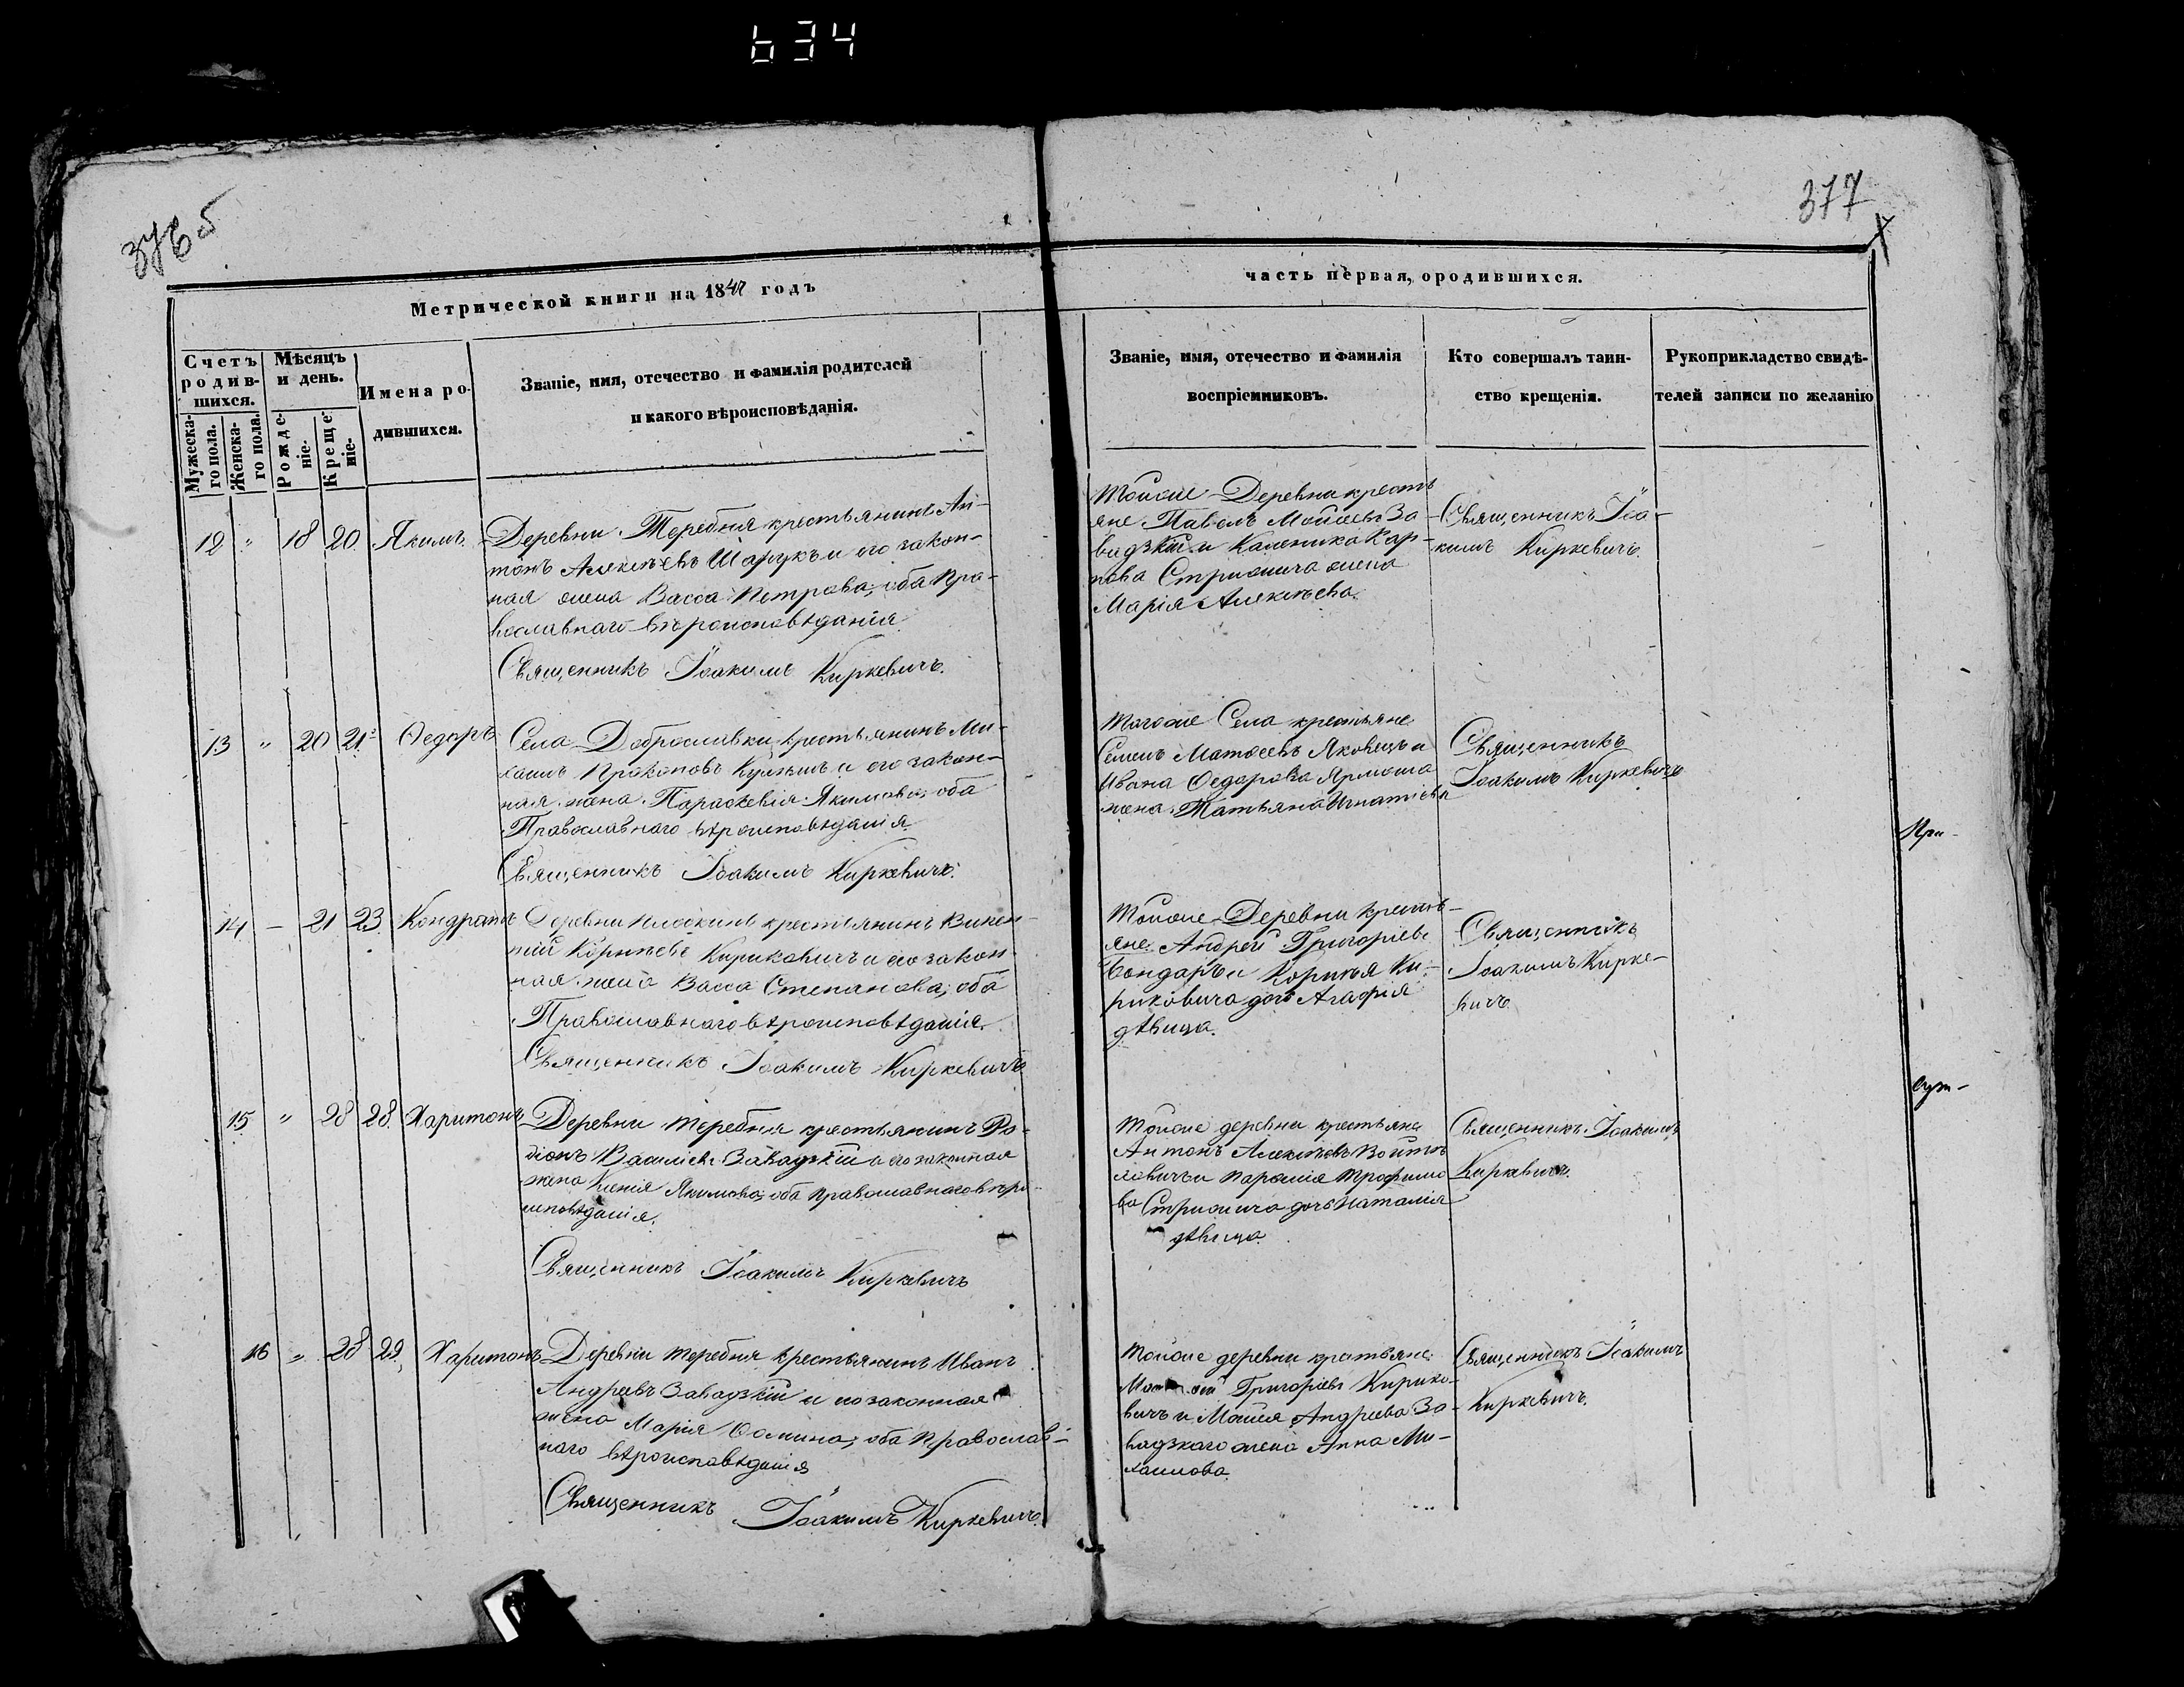 634
376 б
377
Метрической книги на 1847 годъ
часть первая, ородившихся.
Счетъ родив-шихся.
Мужеска-го пола.
Женска-го пола.
Мѣсяцъ и день.
Рожде-ніе.
Креще-ніе.
Имена ро-
дившихся.
Званіе, имя, отечество и фамилія родителей
и какого вѣроисповѣданія.
Званіе, имя, отечество и фамилія
воспріемниковъ.
Кто совершалъ таин-
ство крещенія.
Рукоприкладство свидѣ-
телей записи по желанію
12 " 18 20 Якимъ
Деревни Теребня крестьянинъ Ан-
тонъ Алексѣевъ Шарукъ и его закон-
ная жена Васса Петрова, оба Пра-
вославнаго вѣроисповѣданія
Священникъ Іоакимъ Киркевичъ.
Тойже Деревни кресть
яне Павелъ Моисеевъ За-
вадзкій и Каленика Кар-
пова Стрижича жена
Марія Алексѣева.
Священникъ Іоа-
кимъ Киркевичъ.
13 " 20 21 Ѳедоръ
Села Доброславки крестьянинъ Ми-
хаилъ Прокоповъ и его закон-
ная жена Параскевія Якимова, оба
Православнаго вѣроисповѣданія
Священникъ Іоакимъ Киркевичъ.
Тогоже Села крестьяне
Семенъ Матѳеевъ Яковецъ и
Ивана Ѳедорова Ярмоша
жена Татьяна Игнатіева
Священникъ
Іоакимъ Киркевичъ
При-
14 — 21 23 Кондратъ
Деревни крестьянинъ Викен-
тій Корнѣевъ Кириковичъ и его закон-
ная жена Васса Степанова, оба
Православнаго вѣроисповѣданія.
Священникъ Іоакимъ Киркевичъ
Тойже Деревни кресть-
яне Андрей Григоріевъ
Бондаръ и Корнѣя Ки-
риковича дочь Агафія
дѣвица.
Священникъ
Іоакимъ Кирке-
вичъ
15 " 28 28 Харитонъ
Деревни Теребня крестьянинъ Ро-
діонъ Василіевъ Завадзкій и его законная
жена Ксенія Якимова, оба православнаго вѣро-
исповѣданія.
Священникъ Іоакимъ Киркевичъ
Тойже деревни крестьяне
Антонъ Алексѣевъ Войтѣ
ховичъ и Трофимо
ва Стрижича дочь Наталія
дѣвица.
Священникъ Іоакимъ
Киркевичъ.
сут-
16 " 28 29 Харитонъ
Деревни Теребня крестьянинъ Иванъ
Андреевъ Завадзкій и его законная
жена Марія Ѳомина, оба Православ-
наго вѣроисповѣданія
Священникъ Іоакимъ Киркевичъ.
Тойже деревни крестьяне
Григоріевъ Кирико-
вичъ и Моисея Андреева За-
вадзкаго жена Анна Ми-
хаилова.
Священникъ Іоакимъ
Киркевичъ.